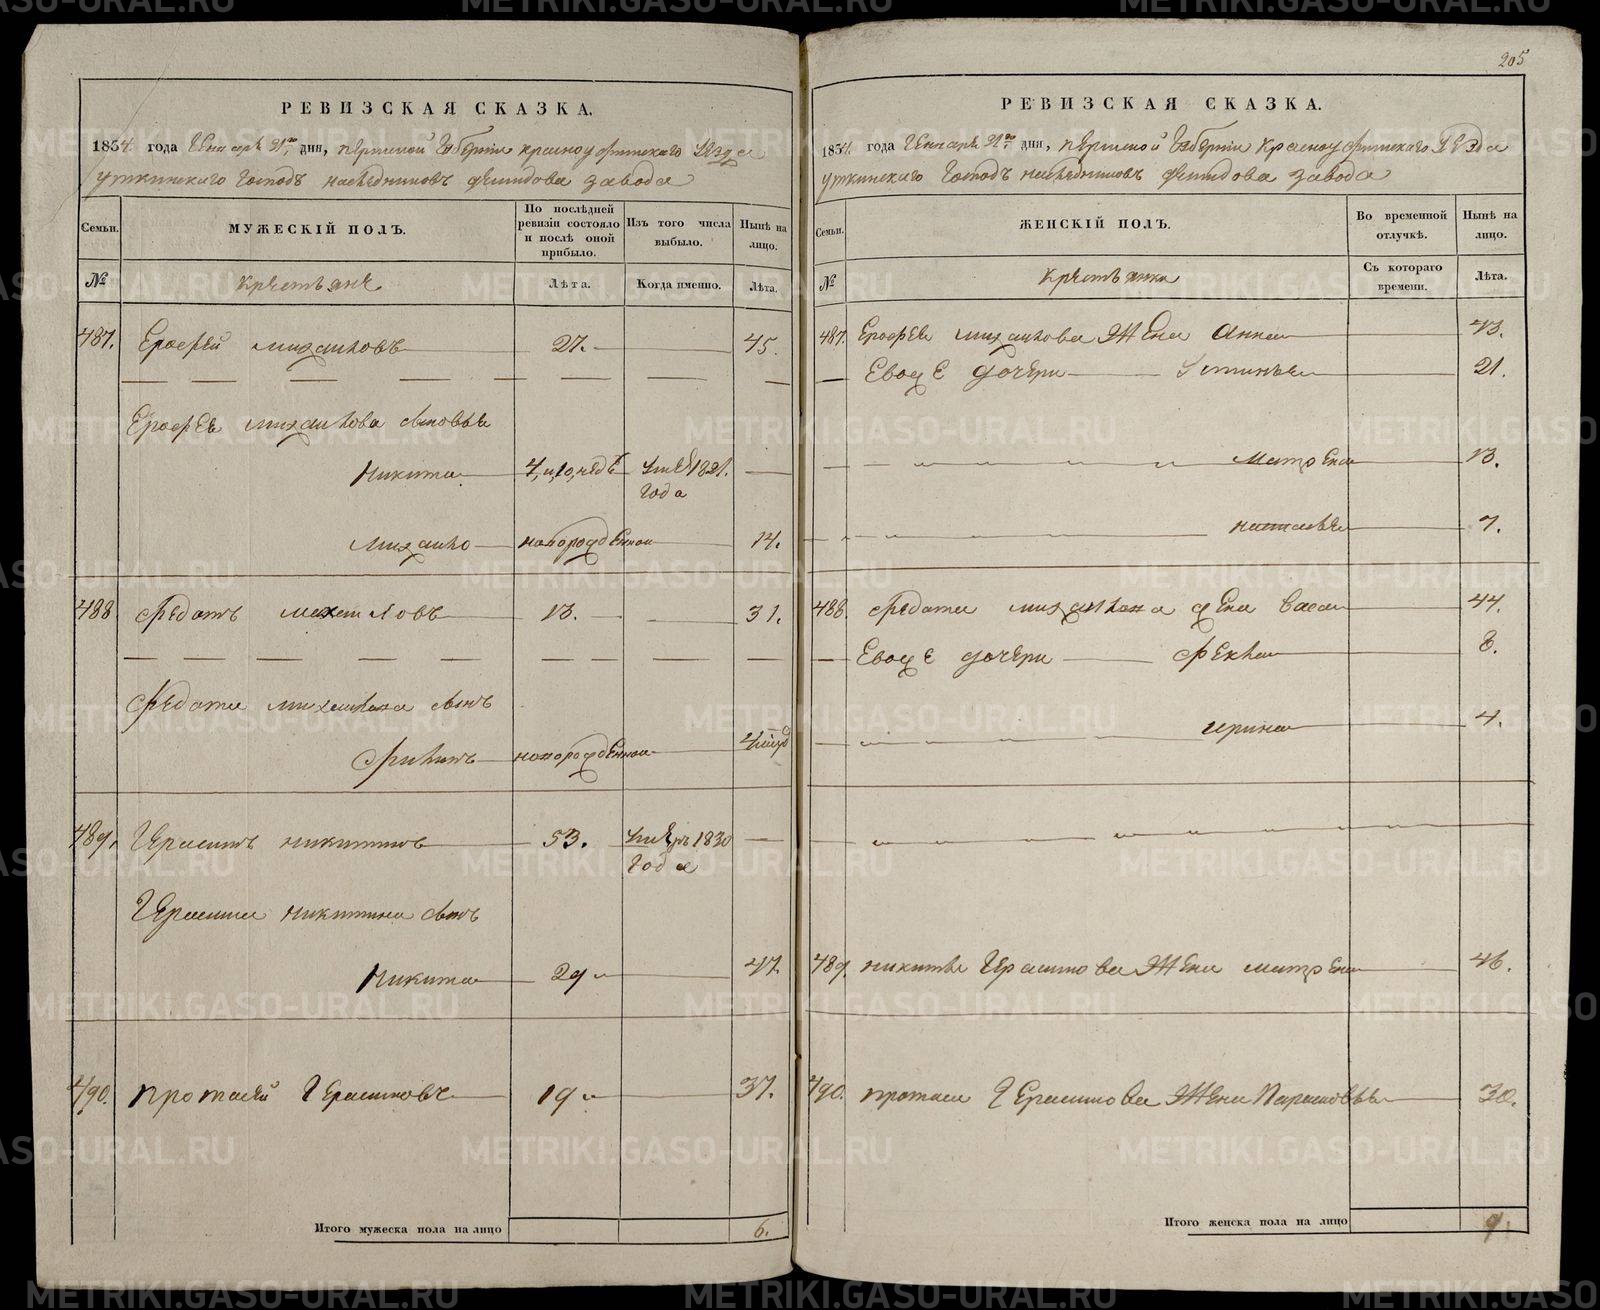 205
РЕВИЗСКАЯ СКАЗКА.
1834 года Генваря 21го дня, пермской Губернии красноуфимскаго уезда
уткинскаго Господъ наследниковъ демидова завода
Семьи. МУЖЕСКІЙ ПОЛЪ. По послѣдней ревизіи состояло и послѣ оной прибыло. Изъ того числа выбыло. Нынѣ на лицо.
№ крестьяне Лѣта. Когда именно. Лѣта.
487. Ерофей михаиловъ 27. 45.
Ерофея михаилова сыновья
Никита 4, и 10, недъ 1821. года
михаило новорожденной 14.
488 Федотъ михаиловъ 13. 31.
Федота михаилова сынъ
Филипъ новорожденной
489. Герасимъ никитинъ 53. умеръ 1830 года
Герасима никитина сынъ
Никита 29 47.
490. протасей Герасимовъ 19 37.
Итого мужеска пола на лицо 6.
РЕВИЗСКАЯ СКАЗКА.
1834. года Генваря 21го дня, пермской Губернии красноуфимскаго уезда
уткинскаго Господъ наследниковъ демидова завода
Семьи. ЖЕНСКІЙ ПОЛЪ. Во временной отлучкѣ. Нынѣ на лицо.
№ крестьянки Съ котораго времени. Лѣта.
487. Ерофея михаилова Жена Анна 43.
Евож е дочери Устинья 21.
матрена 13.
наталья 7.
488. Федота михаилова жена Васа 44.
Евож е дочери Фекла 8.
ирина 4.
489. никиты Герасимова Жена матрена 46.
490. протася Герасимова Жена Парасковья 30.
Итого женска пола на лицо 9.
METRIKI.GASO-URAL.RU